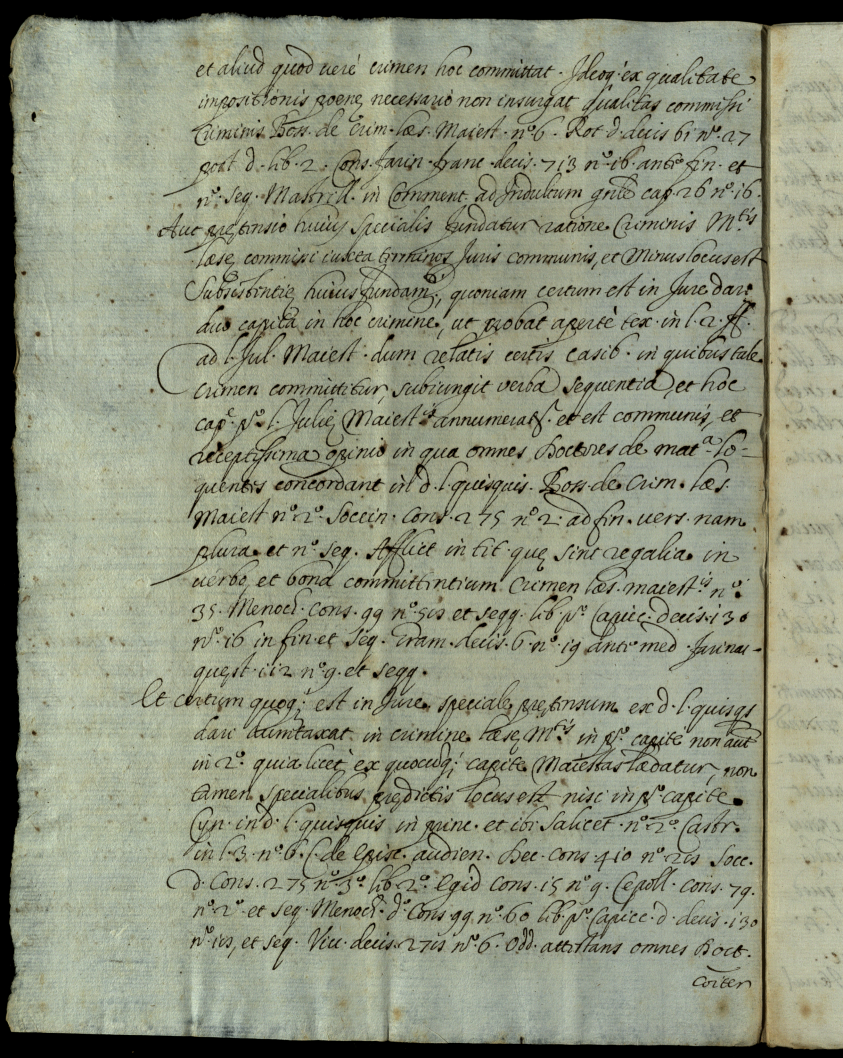 et aliud quod verè crimen hoc committat. Ideoq; ex qualitate
impositionis poenę necessario non insurgat qualitas commissi
Criminis. Boss. de Crim. læs. Maiest. nº. 6. Rot. d. decis. 61 nº. 27
post d. lib. 2. Cons. Farin. franc. decis. 713 nº. 16. ante fin. et
nº. seq. Mastrill. in Comment. ad Indultum gnle cap. 26 nº. 16.
Aut prętensio huius specialis fundatur ratione Criminis Mtis
læsę commissi iuxta terminos Juris communis, et Minus locus est
Subsistentię huius fundamti, quoniam certum est in Jure dari
duo capita in hoc crimine, ut probat apertè tex. in l. 2. ff.
ad l. Jul. Maiest. dum relatis certis casib. in quibus tale
crimen committitur, subiungit verba sequentia, et hoc
cape. po. l. Julię Maiestis annumeratr. et est communis, et
receptissima opinio in qua omnes Doctores de mata. lo=
quentes concordant in d. l. quisquis. Boss. de Crim. læs.
Maiest nº. 2º. Soccin. Cons. 275 nº. 2. ad fin. vers. nam
plura. et nº. seq. Afflict. in tit. quę sint regalia. in
verbo, et bona committentium Crimen læs. maiestis nº.
35. Menoch. Cons. 99 nº. 58 et seqq. lib. po. Capicc. Decis. 130
nº. 16 in fin. et Seq. Gram. decis. 6. nº. 19 ante med. Farinac=
quęst. 112 nº. 9. et seqq.
Et certum quoq; est in Jure, speciale, prętensum ex d. l. quisqs
dari dumtaxat in crimine læsę Mtis in po. capite non aut
in 2º. quia licet ex quocuq; capite Maiestas lædatur, non
tamen specialibus prędictis locus est nisi in po. capite.
Cyn. in d. l. quisquis in princ. et ibi Salicet. nº. 2º. Castr.
in l. 3. nº. 6. C. de Episc. audien. Dec. cons. 410 nº. 28 Socc.
d. Cons. 275 nº. 3º. lib. 2º. Egid. Cons. 15 nº. 9. Cepoll. cons. 79.
nº. 2º. et seq. Menoch. do. Cons. 99. nº. 60 lib. po. Capicc. d. decis. 130
nº. 18, et seq. Viu. decis. 278 nº. 6. Odd. attestans omnes Doct.
coiter